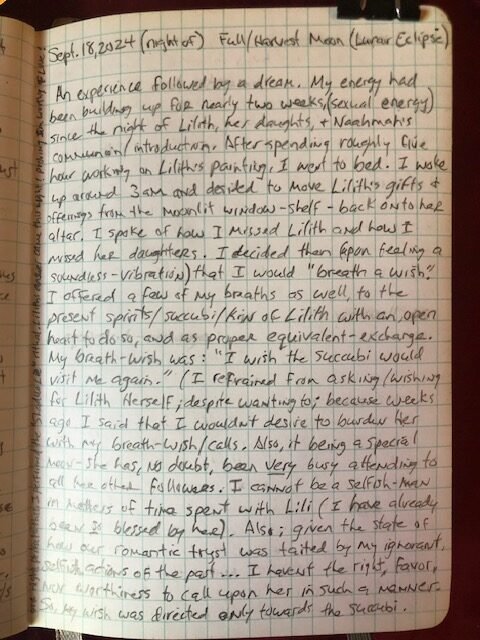 Sept. 18, 2024 (night of) Full/Harvest Moon (Lunar Eclipse)
An experience followed by a dream. My energy had
been building up for nearly two weeks, (sexual energy)
since the night of Lilith, her daughts, + Naahmah's
communion/introduction. After spending roughly five
hour working on Lilith's painting, I went to bed. I woke
up around 3am and decided to move Lilith's gifts +
offerings from the moonlit window-shelf - back onto her
altar. I spoke of how I missed Lilith and how I
missed her daughters. I decided then (upon feeling a
soundless-vibration) that I would "breath a wish."
I offered a few of my breaths as well, to the
present spirits/succubi/kin of Lilith with an open
heart to do so, and as proper equivalent-exchange.
My breath-wish was: "I wish the succubi would
visit me again." (I refrained from asking/wishing
for Lilith Herself; despite wanting to; because weeks
ago I said that I wouldn't desire to burden her
with my breath-wish/calls. Also, it being a special
moon-she has, no doubt, been very busy attending to
all her other followers. I cannot be a selfish-man
in matters of time spent with Lili (I have already
been so blessed by her). Also; given the state of
how our romantic tryst was taited by my ignorant,
selfish actions of the past... I havent the right, favor,
nor worthiness to call upon her in such a manner.
So, my wish was directed only towards the succubi.